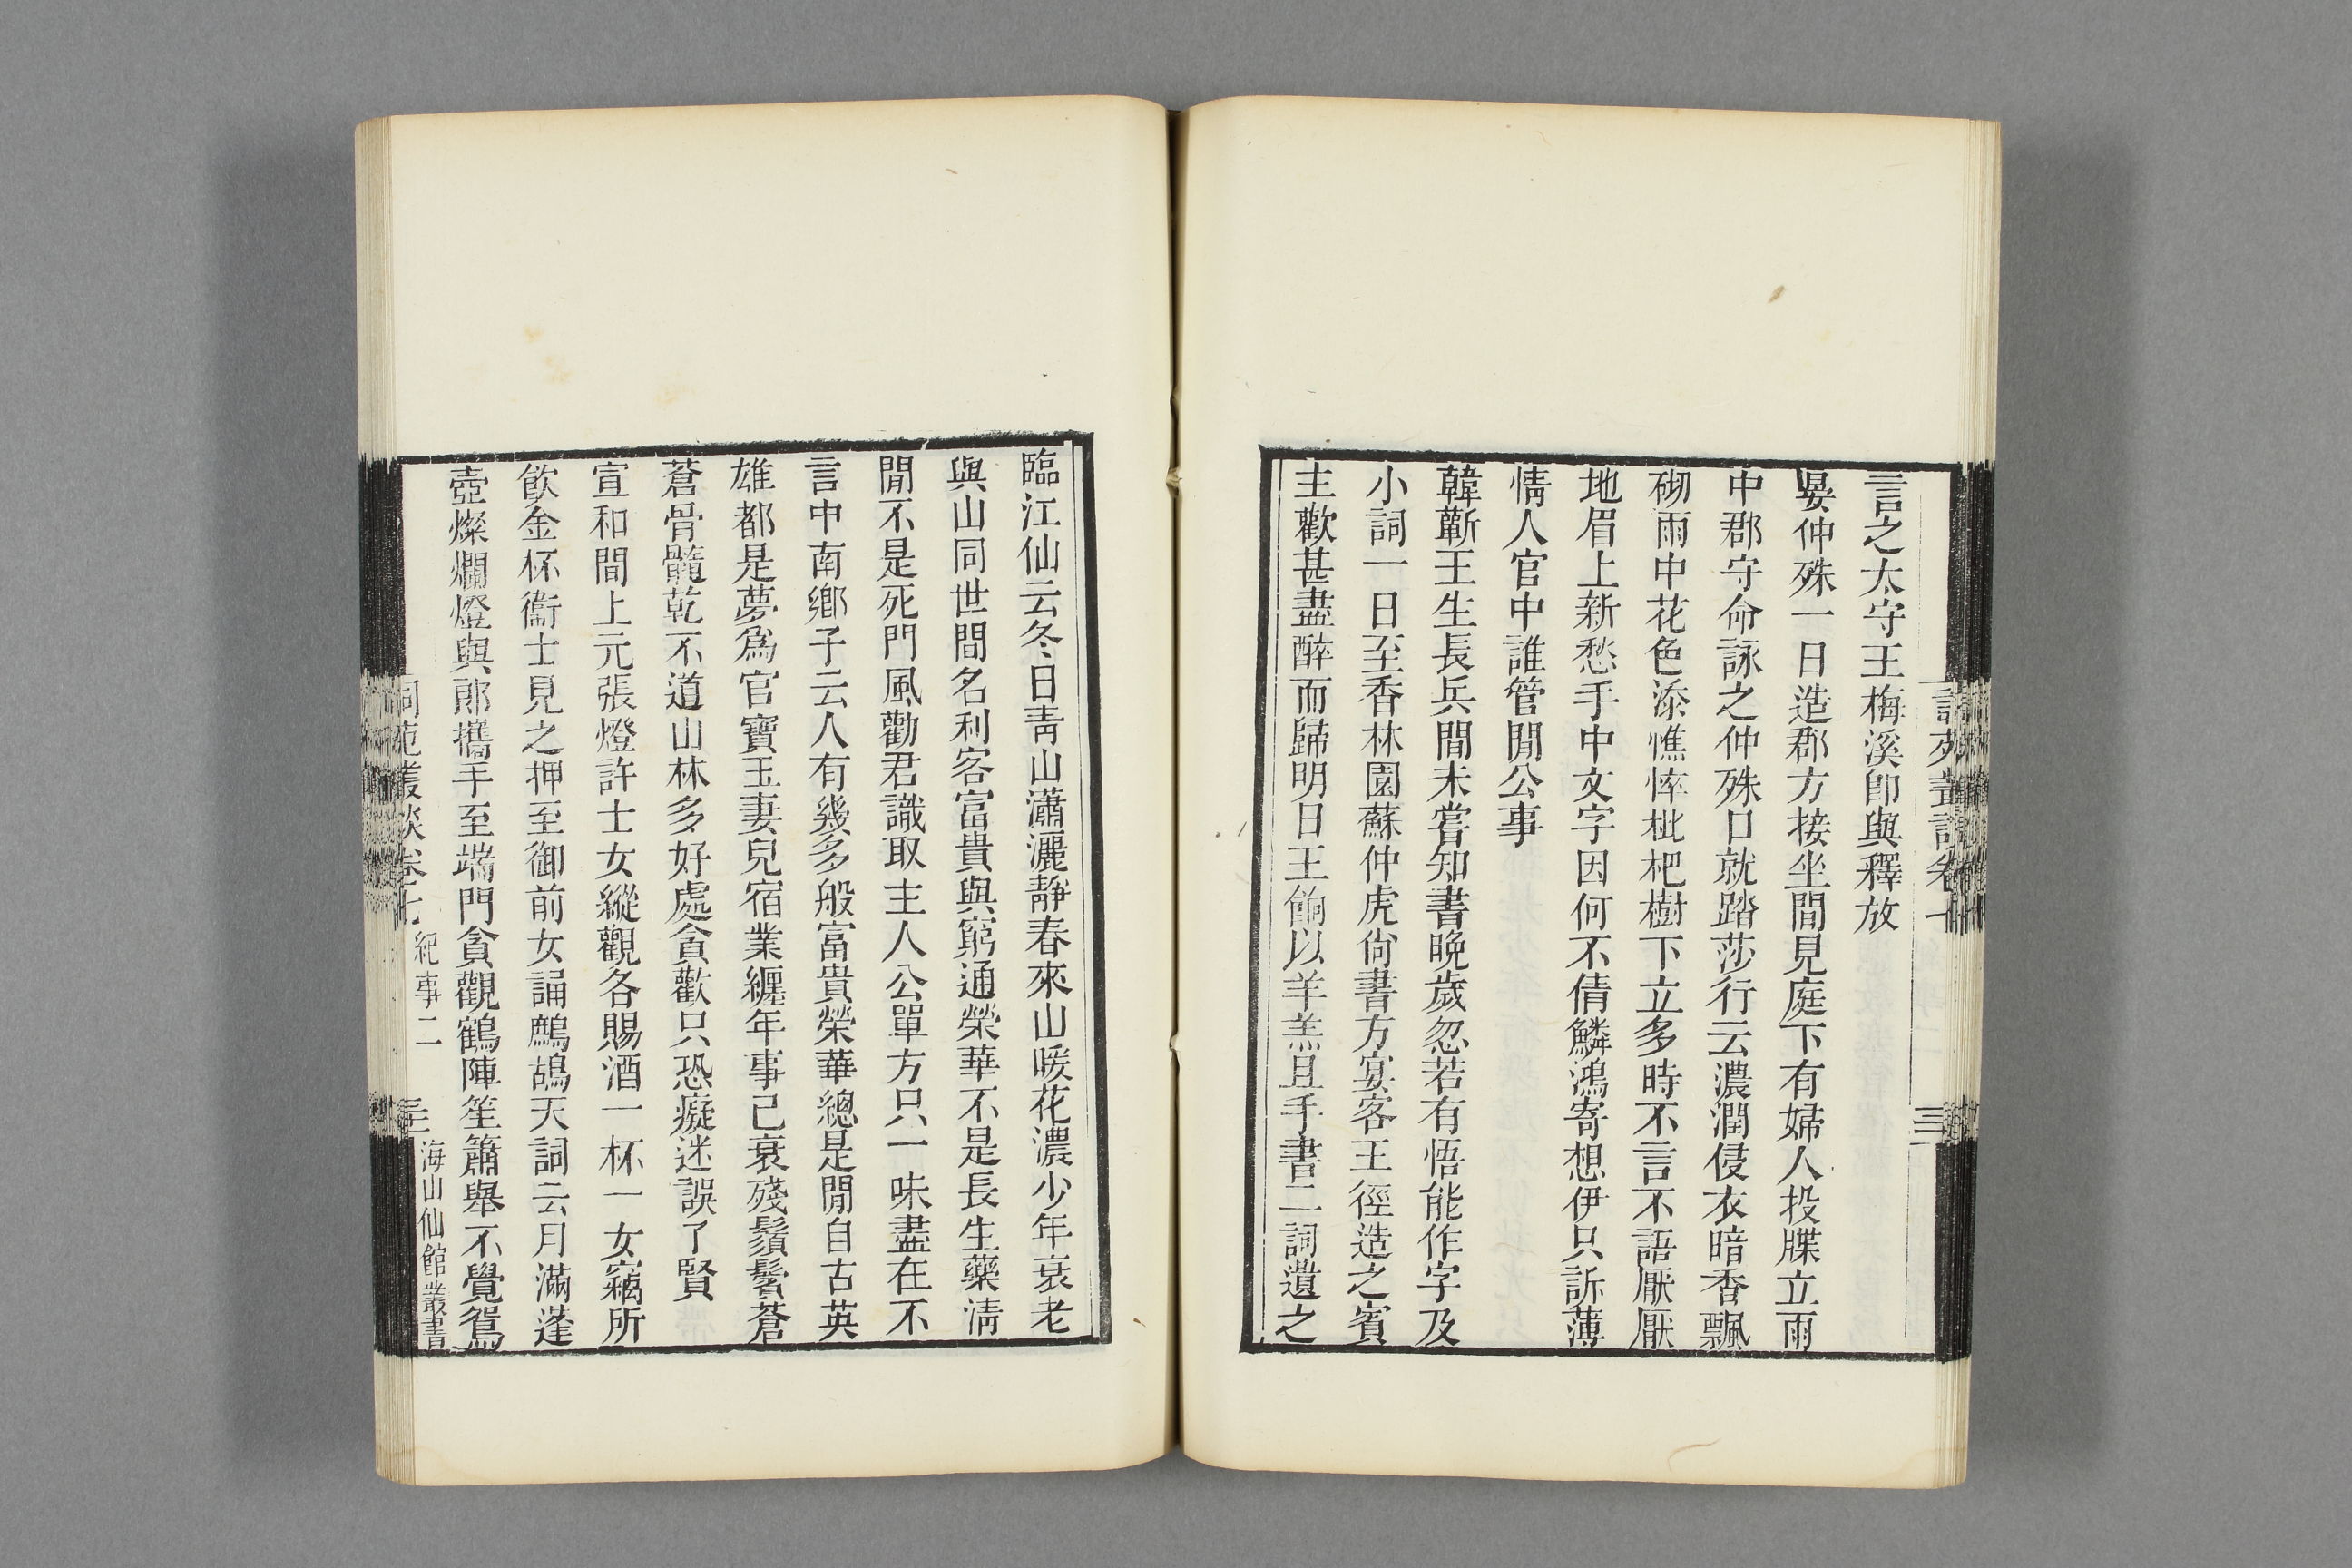 言之太守王梅溪卽與釋放
晏仲殊一日造郡方接坐間見庭下有婦人投牒立雨
中郡守命詠之仲殊口就踏莎行云濃潤侵衣暗香飄
砌雨中花色添憔悴枇杷樹下立多時不言不語厭厭
地眉上新愁手中文字因何不倩鱗鴻寄想伊只訴薄
情人官中誰管閒公事
韓蘄王生長兵間未嘗知書晚歲忽若有悟能作字及
小詞一日至香林園蘇仲虎尙書方宴客王徑造之賓
主歡甚盡醉而歸明日王餉以羊羔且手書二詞遺之
臨江仙云冬日靑山瀟灑靜春來山暖花濃少年衰老
與山同世間名利客富貴與窮通榮華不是長生藥淸
閒不是死門風勸君識取主人公單方只一味盡在不
言中南鄉子云人有幾多般富貴榮華總是閒自古英
雄都是夢爲官寶玉妻兒宿業纏年事已衰殘鬚鬢蒼
蒼骨髓乾不道山林多好處貪歡只恐癡迷誤了賢
宣和間上元張燈許士女縱觀各賜酒一杯一女竊所
飮金杯衞士見之押至御前女誦鷓鴣天詞云月滿蓬
壺燦爛燈與郞攜手至端門貪觀鶴陣笙簫舉不覺鴛
詞苑叢談卷七 紀事二 海山仙館叢書